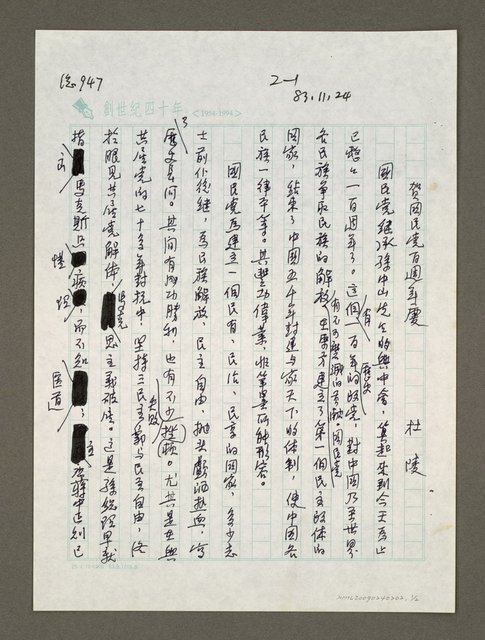 总947
2-1
83.11.24
創世紀四十年 <1954-1994>
賀國民黨百週年慶
杜陵
國民黨繼承孫中山先生的興中會,算起來到今天為止
已整整一百週年了。這個有一百年歷史的政黨,對中國乃至世界
各民族爭取民族的解放有不可磨滅的貢獻,國民黨建立了第一個民主政体的
國家,結束了中國五千年封建与家天下的体制,使中國各
民族一律平等。其豐功偉業,非筆墨所能形容。
國民黨為建立一個民有、民治、民享的國家,多少志
士前仆後継,為民族解放,民主自由,拋頭顱洒熱血,寫
歷史長河。其間有成功勝利,也有不少失敗挫頓。尤其是在與
共產黨的七十多年對抗中,堅持三民主義与民主自由,終
於眼見共產黨解体,馬克思主義破產。這是孫總理早就
指馬克斯只懂病理,而不知醫道;